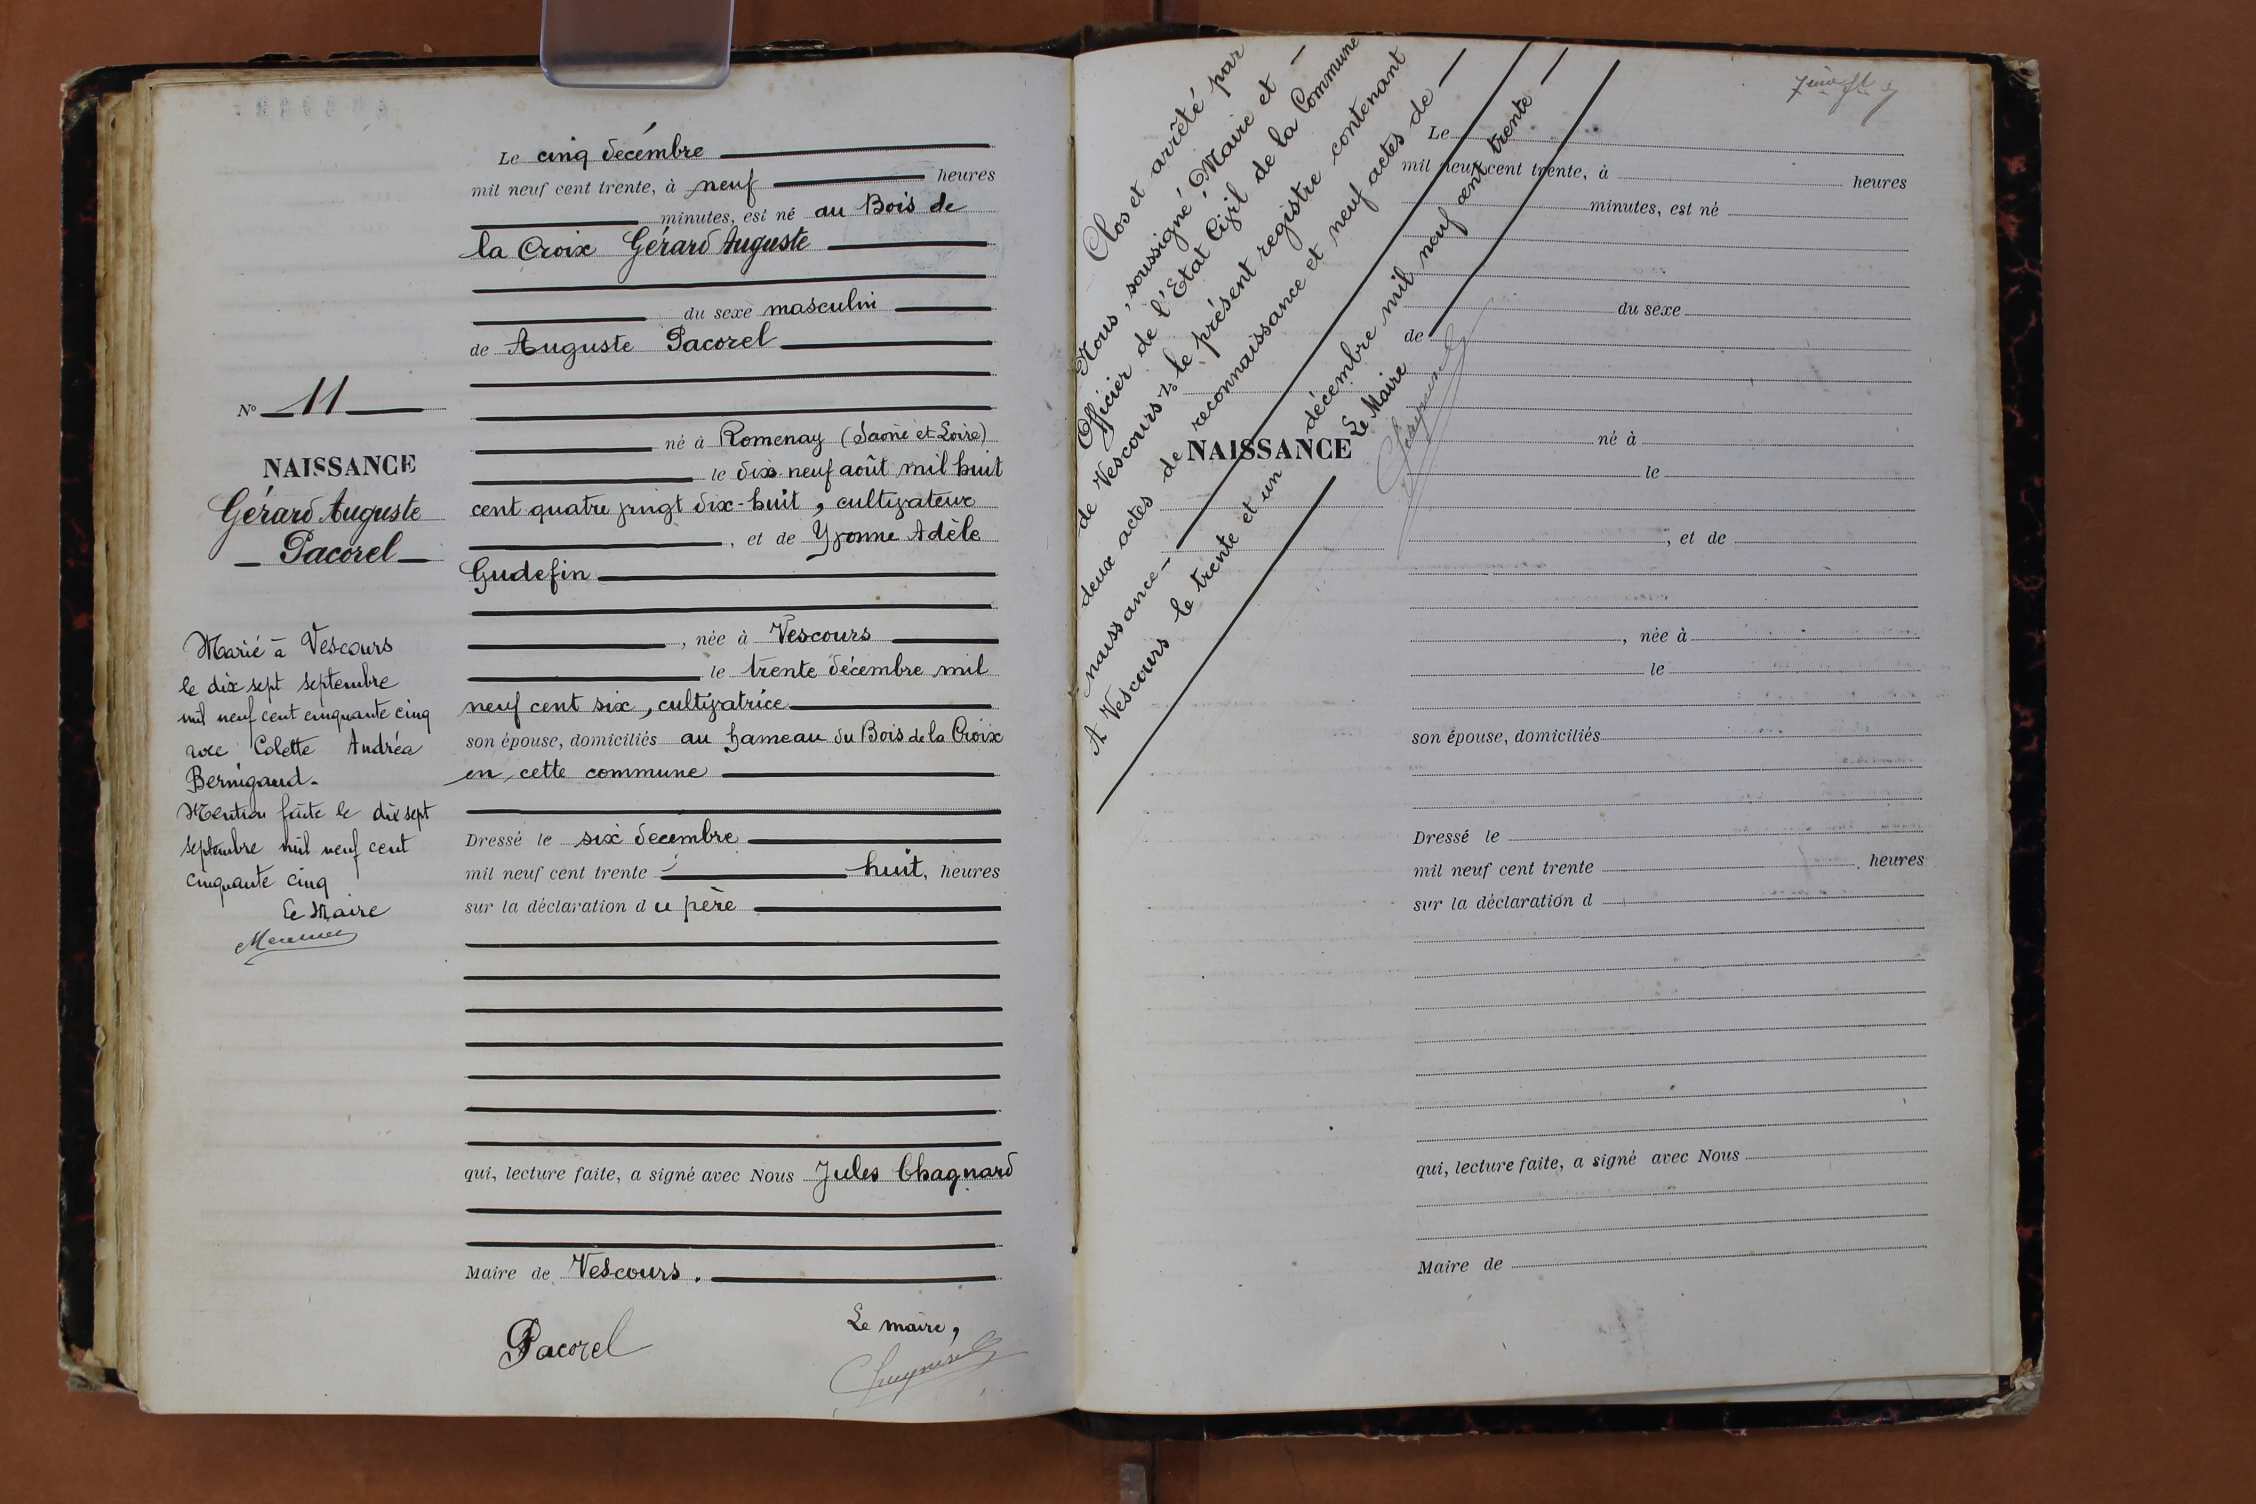 N° 11
NAISSANCE
Gérard Auguste
Pacorel
Marié à Vescours
le dix sept septembre
mil neuf cent cinquante cinq
avec Colette Andréa
Bernigaud.
Mention faite le dix sept
septembre mil neuf cent
cinquante cinq
Le Maire
Le cinq décembre
mil neuf cent trente, à neuf heures
minutes, est né au Bois de
la Croix Gérard Auguste
du sexe masculin
de Auguste Pacorel
né à Romenay (Saône et Loire)
le dix neuf août mil huit
cent quatre vingt dix-huit, cultivateur
, et de Yvonne Adèle
Gudefin
, née à Vescours
le trente décembre mil
neuf cent six, cultivatrice
son épouse, domiciliés au hameau du Bois de la Croix
en cette commune
Dressé le six décembre
mil neuf cent trente huit, heures
sur la déclaration du père
qui, lecture faite, a signé avec Nous Jules Chagnard
Maire de Vescours.
Pacorel
Le maire,
Clos et arrêté par
Nous, soussigné, Maire et
Officier de l'Etat Civil de la Commune
de Vescours, le présent registre contenant
deux actes de reconnaissance et neuf actes de
naissance
A Vescours le trente et un décembre mil neuf cent trente
Le Maire
NAISSANCE
Le
mil neuf cent trente, à heures
minutes, est né
du sexe
de
né à
le
, et de
, née à
le
son épouse, domiciliés
Dressé le
mil neuf cent trente heures
sur la déclaration d
qui, lecture faite, a signé avec Nous
Maire de